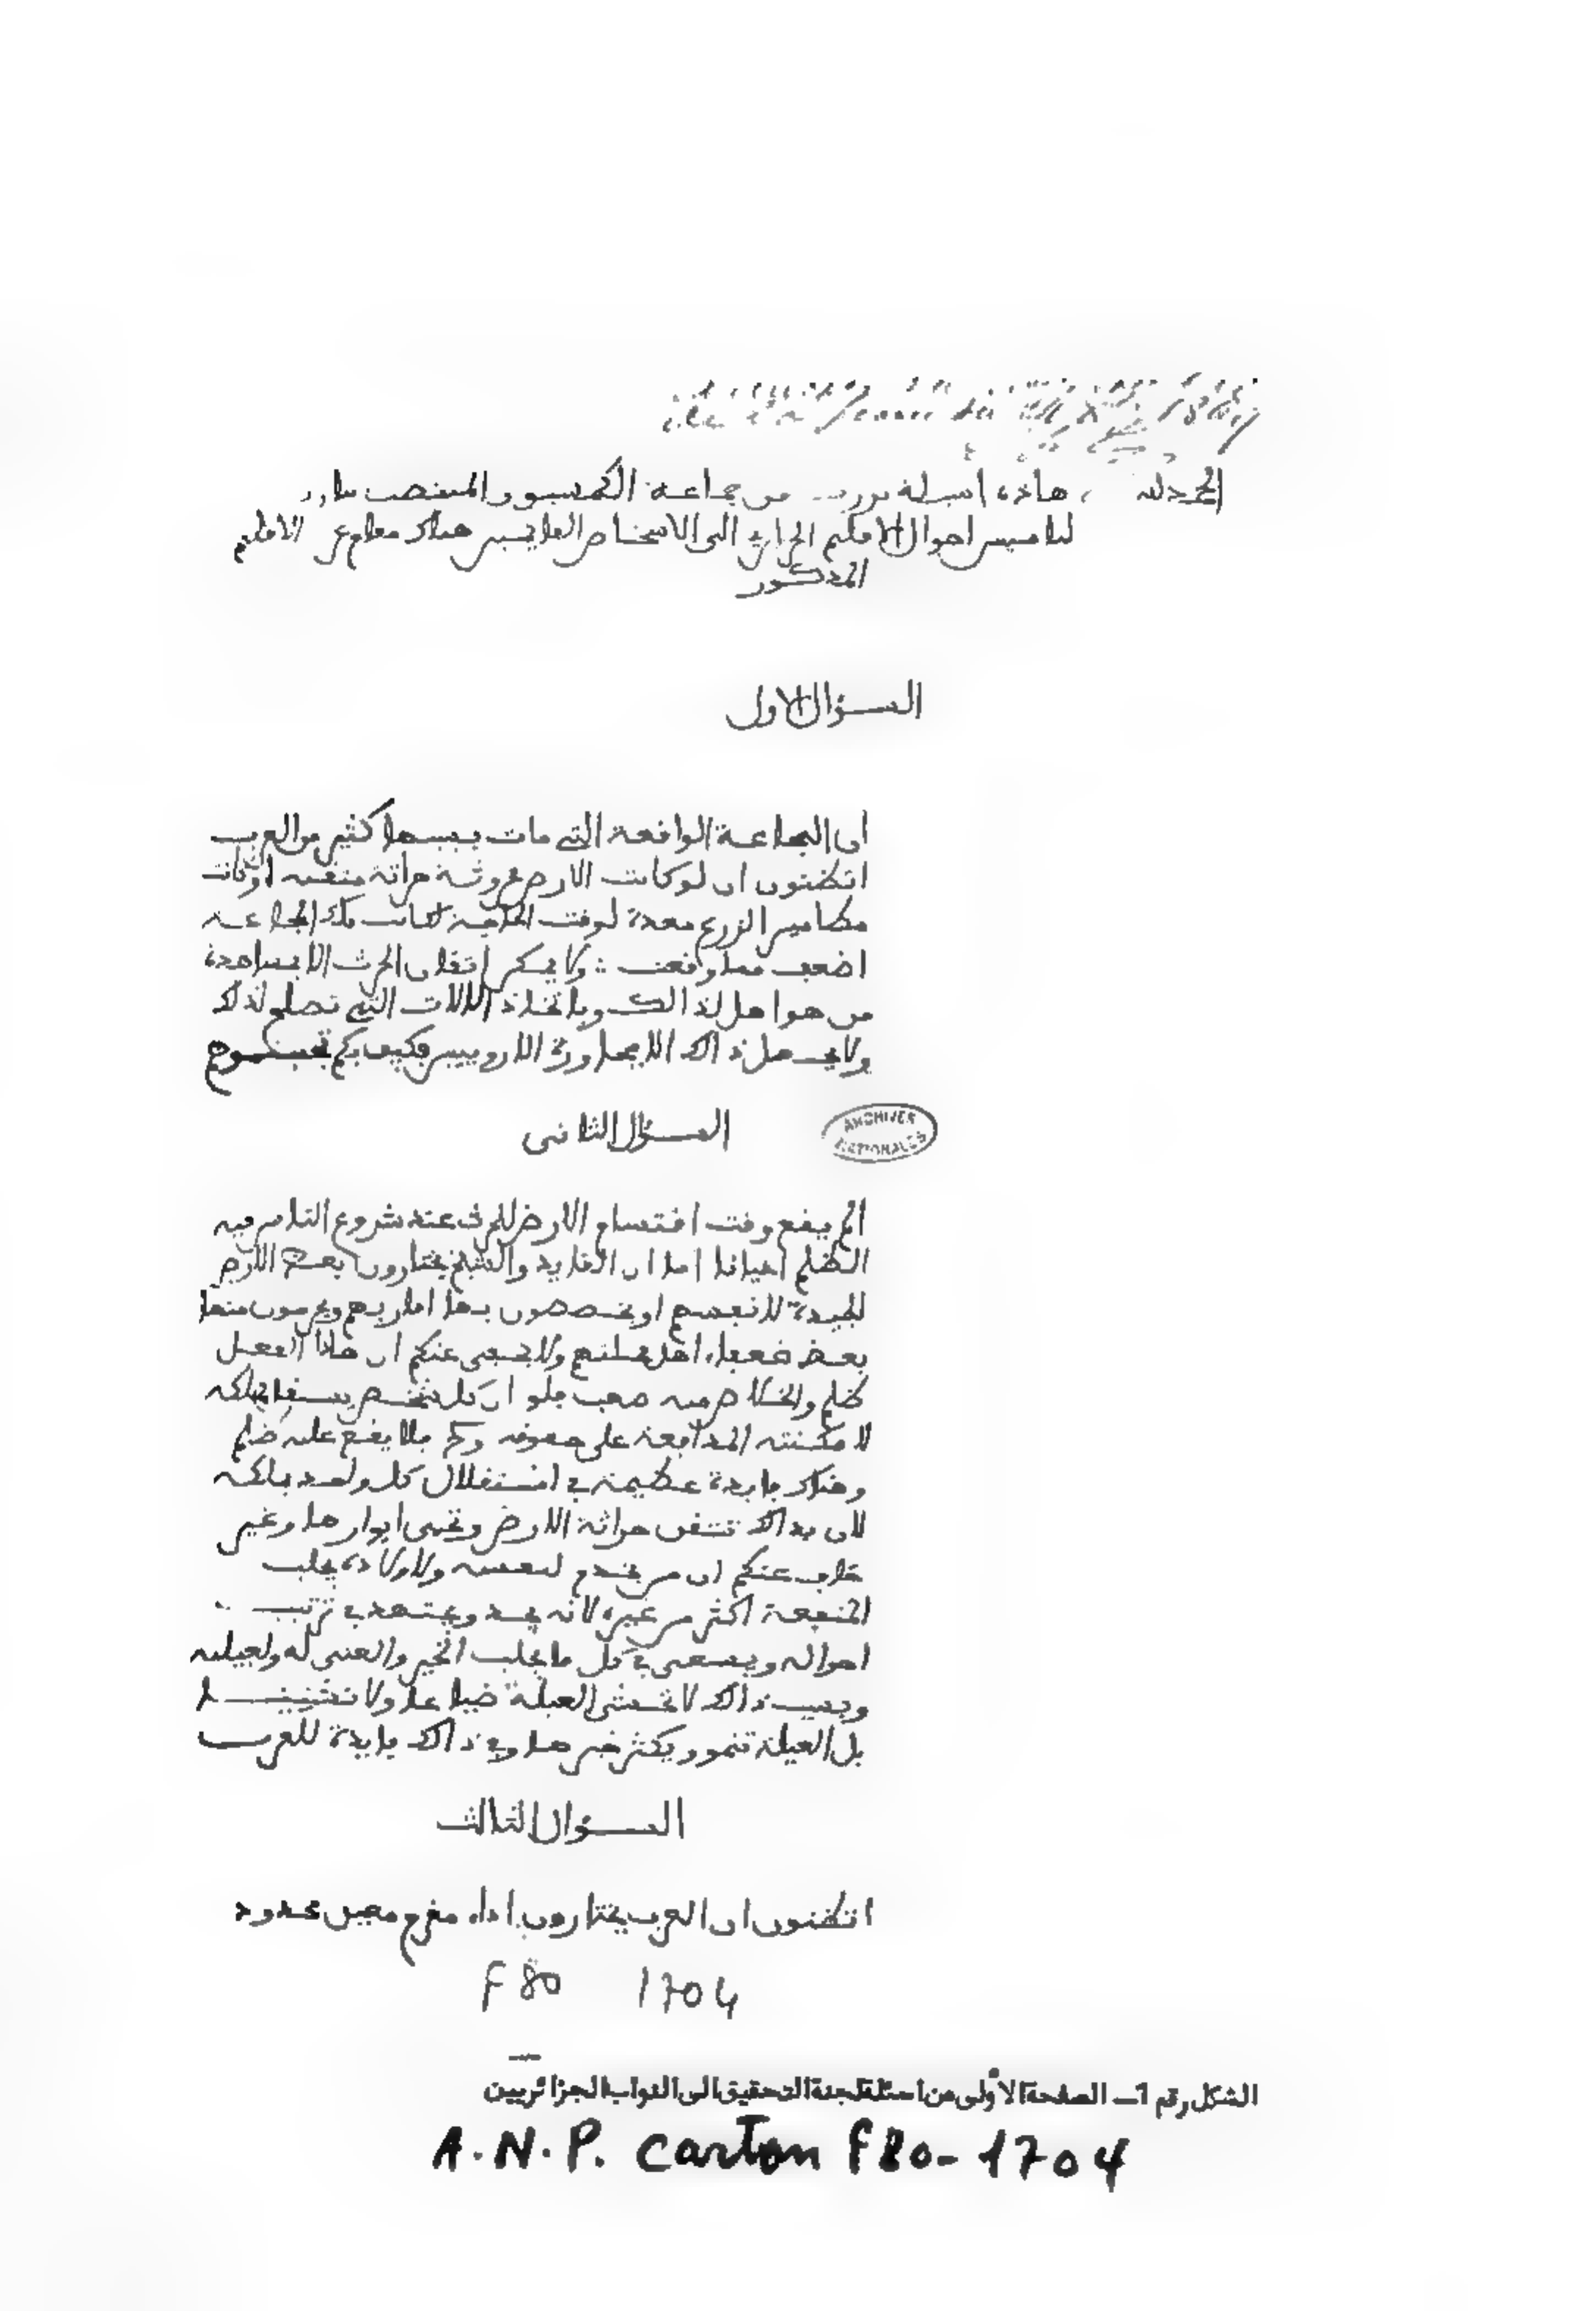 الحمد لله هاذه اسيلة من جماعة الكمسيون المنتصب
احوال الاقليم الجزايري الى الاشخاص الغايبين هناك الاقليم
المذكور
السؤال الاول
ان المجاعة الواقعة التي مات بسببها كثير من العرب
اتظنون ان لو كانت الارض محروثة حراثة متقنة او كانت
مطامير الزرع معدة لوقت الحاجة لكانت تلك المجاعة
اضعف مما وقعت ولا يمكن اتقان الحرث الا بمساعدة
من هو اهل لذالك وباتخاذ الالات التي تصلح لذلك
ولا يحصل ذالك الا بمجاورة الاروبيين فكيف بكم
السؤال الثاني
ARCHIVES NATIONALES
الم يقع وقت اقتسام الارض للحرث عند شروع الناس فيه
الظلم احيانا اما ان القايد والشيخ يختارون بعض الارض
الجيدة لانفسهم او يخصصون بها اقاربهم ويحرمون منها
بعض ضعفاء اهل ولا يخفى عنكم ان هاذا الفعل
ظلم والخلاص منه صعب فلو ان كل شخص يستقل بملكه
لامكنته المدافعة على حقوقه فلا يقع عليه ظلم
وهناك فايدة عظيمة في استقلال كل واحد بملكه
لان بذالك تتقن حراثة الارض وغير
خاف عنكم ان من يخدم لنفسه ولاولاده يجلب
المنفعة اكثر من غيره لانه يجد ويجتهد في ترتيب
احواله ويسعى في كل ما يجلب الخير والغنى له ولعيلته
وبسبب ذالك لا تخشى العيلة ضياعا ولا تشتيتا
بل العيلة تنمو ويكثر خيرها وفي ذالك فايدة للعرب
السؤال الثالث
اتظنون ان العرب يختارون اداء مغرم معين محدود
F 80 1704
الشكل رقم 1ـ الصفحة الأولى من اسئلة لجنة التحقيق الى النواب الجزائريين
A.N.P. Carton F80-1704